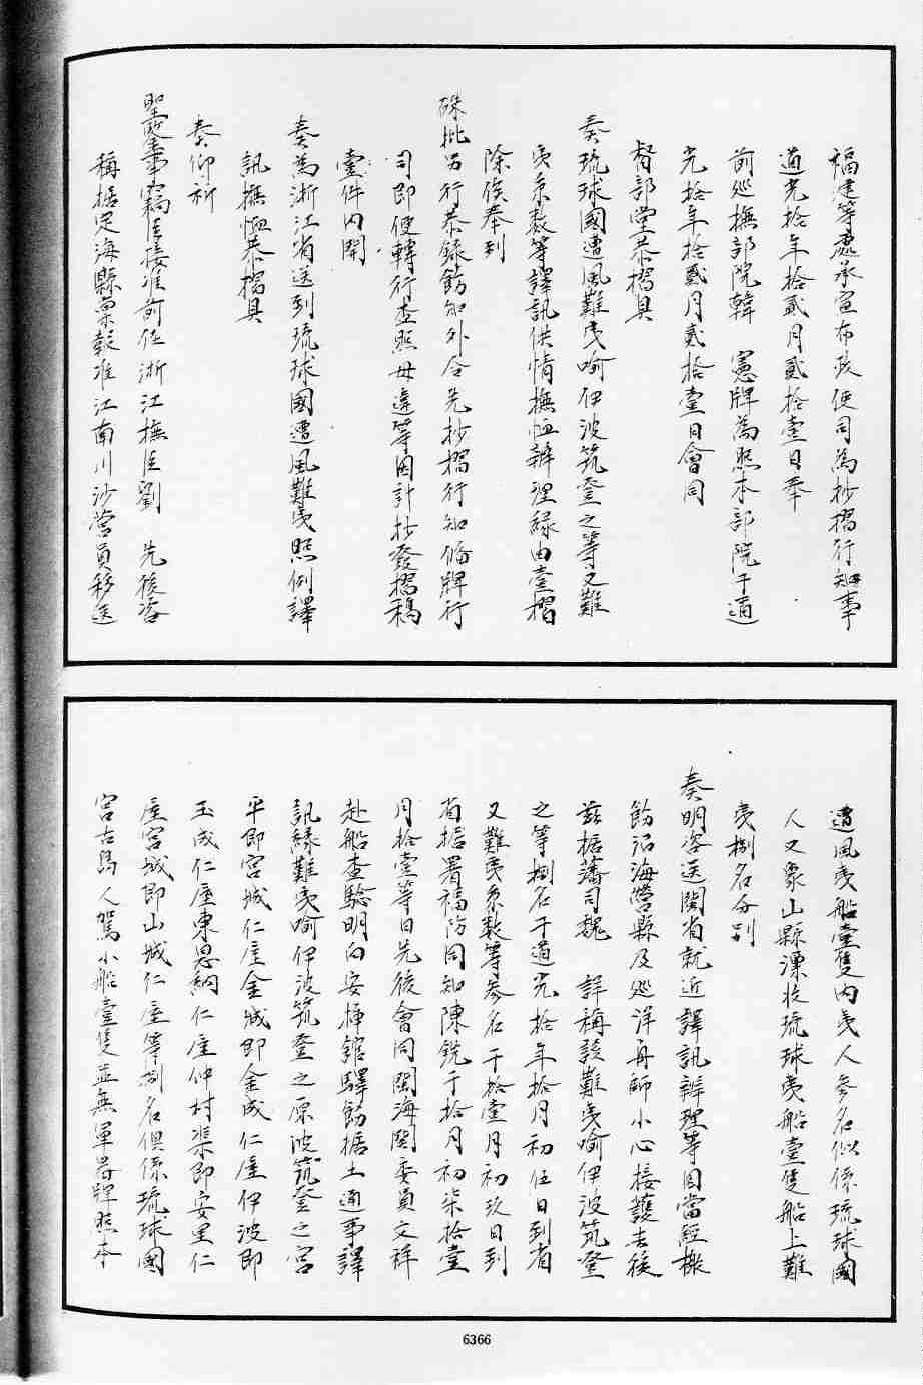 福建等處承宣布政使司為抄摺行知事
道光拾年拾貳月貳拾壹日奉
前巡撫部院韓　憲牌為照本部院于道
光拾年拾貳月貳拾壹日會同
督部堂恭摺具
奏琉球國遭風難夷喻伊波筑登之等又難
夷系数等譯訊供情撫恤辦理緣由壹摺
除俟奉到
硃批另行恭錄飭知外合先抄摺行知備牌行
司即便轉行查照毋違等因計抄發摺稿
壹件內開
奏為浙江省送到琉球國遭風難夷照例譯
訊撫恤恭摺具
奏仰祈
聖鑒事竊臣接准前任浙江撫臣劉　先後咨
稱據定海縣稟報准江南川沙營員移送
遭風夷船壹隻內夷人參名似係琉球國
人又象山縣漂收琉球夷船壹隻船上難
夷捌名分別
奏明咨送閩省就近譯訊辦理等因當經檄
飭沿海營縣及巡洋舟師小心接護去後
茲據藩司魏　詳稱該難夷喻伊波筑登
之等捌名于道光拾年拾月初伍日到省
又難夷系数等參名于拾壹月初玖日到
省據署福防同知陳銳于拾月初柒拾壹
月拾壹等日先後會同閩海關委員文祥
赴船查驗明白安插館驛飭據土通事譯
訊緣難夷喻伊波筑登之原波筑登之宮
平即宮城仁屋金城即金成仁屋伊波即
玉成仁屋東恩納仁屋仲村渠即安里仁
屋宮城即山城仁屋等捌名俱係琉球國
宮古島人駕小船壹隻並無軍器牌照本
6366